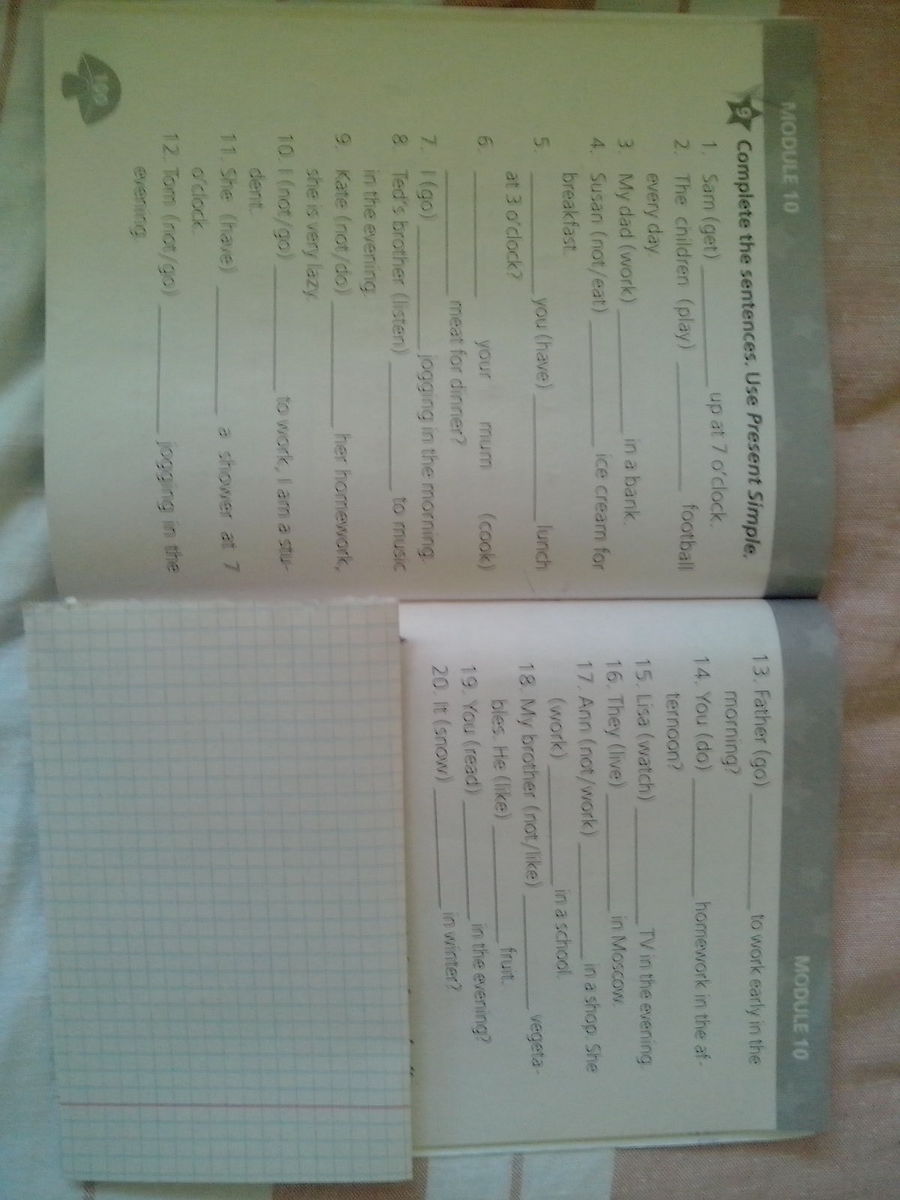 MODULE 10
9 Complete the sentences. Use Present Simple.
1. Sam (get) ________ up at 7 o'clock.
2. The children (play) ________ football
every day.
3. My dad (work) ________ in a bank.
4. Susan (not/eat) ________ ice cream for
breakfast.
5. ________ you (have) ________ lunch
at 3 o'clock?
6. ________ your mum (cook)
________ meat for dinner?
7. I (go) ________ jogging in the morning.
8. Ted's brother (listen) ________ to music
in the evening.
9. Kate (not/do) ________ her homework,
she is very lazy.
10. I (not/go) ________ to work, I am a stu-
dent.
11. She (have) ________ a shower at 7
o'clock.
12. Tom (not/go) ________ jogging in the
evening.
100
MODULE 10
13. Father (go) ________ to work early in the
morning?
14. You (do) ________ homework in the af-
ternoon?
15. Lisa (watch) ________ TV in the evening.
16. They (live) ________ in Moscow.
17. Ann (not/work) ________ in a shop. She
(work) ________ in a school.
18. My brother (not/like) ________ vegeta-
bles. He (like) ________ fruit.
19. You (read) ________ in the evening?
20. It (snow) ________ in winter?